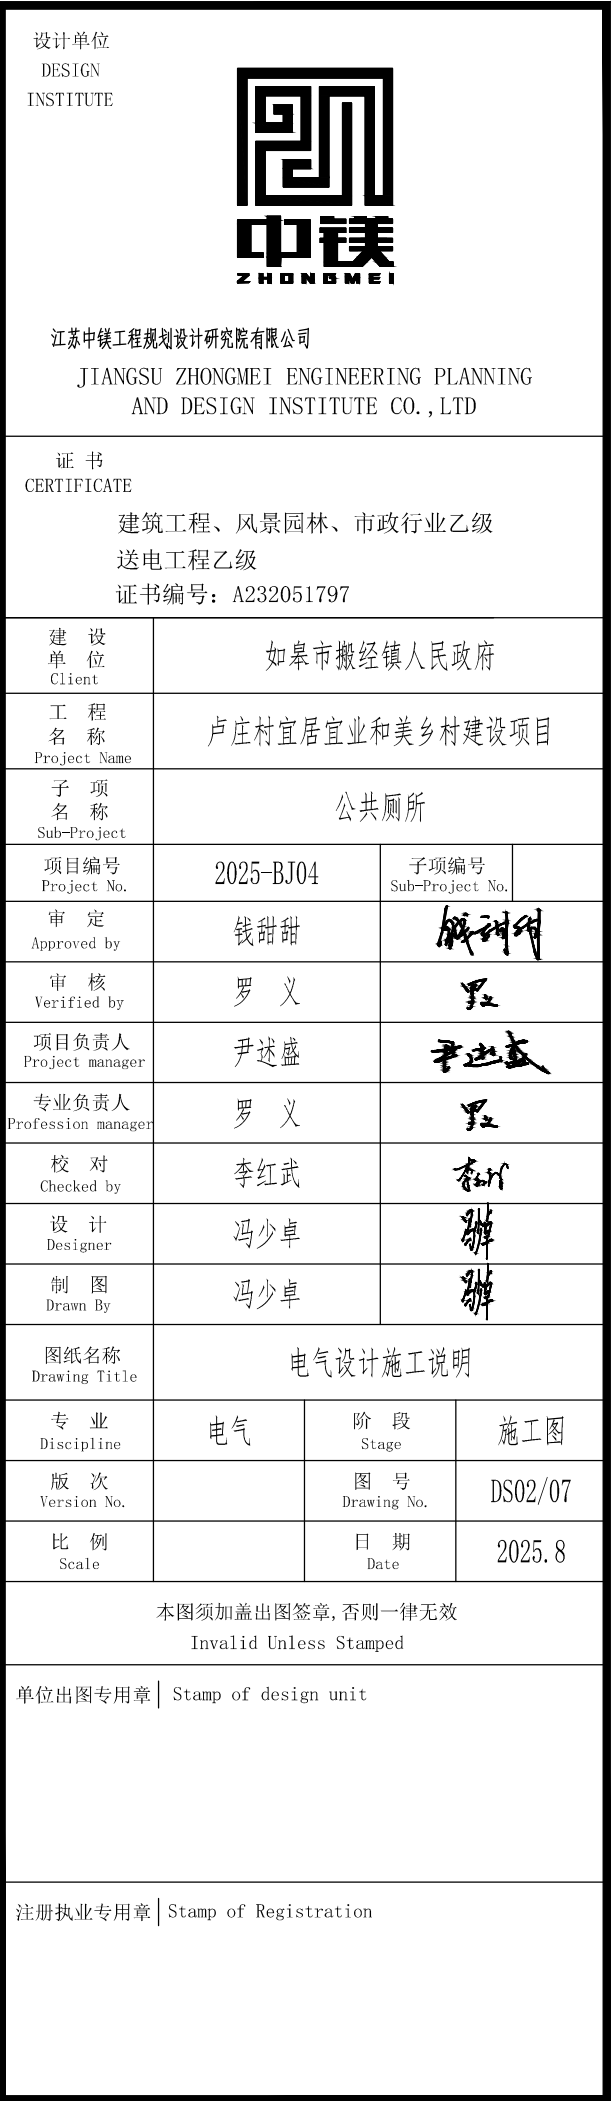 设计单位
DESIGN
INSTITUTE
中镁
ZHONGMEI
江苏中镁工程规划设计研究院有限公司
JIANGSU ZHONGMEI ENGINEERING PLANNING
AND DESIGN INSTITUTE CO.,LTD
证 书
CERTIFICATE
建筑工程、风景园林、市政行业乙级
送电工程乙级
证书编号: A232051797
建 设
单 位
Client
如皋市搬经镇人民政府
工 程
名 称
Project Name
卢庄村宜居宜业和美乡村建设项目
子 项
名 称
Sub-Project
公共厕所
项目编号
Project No.
2025-BJ04
子项编号
Sub-Project No.
审 定
Approved by
钱甜甜
钱甜甜
审 核
Verified by
罗 义
罗义
项目负责人
Project manager
尹述盛
尹述盛
专业负责人
Profession manager
罗 义
罗义
校 对
Checked by
李红武
李红武
设 计
Designer
冯少卓
冯少卓
制 图
Drawn By
冯少卓
冯少卓
图纸名称
Drawing Title
电气设计施工说明
专 业
Discipline
电气
阶 段
Stage
施工图
版 次
Version No.
图 号
Drawing No.
DS02/07
比 例
Scale
日 期
Date
2025.8
本图须加盖出图签章,否则一律无效
Invalid Unless Stamped
单位出图专用章 Stamp of design unit
注册执业专用章 Stamp of Registration